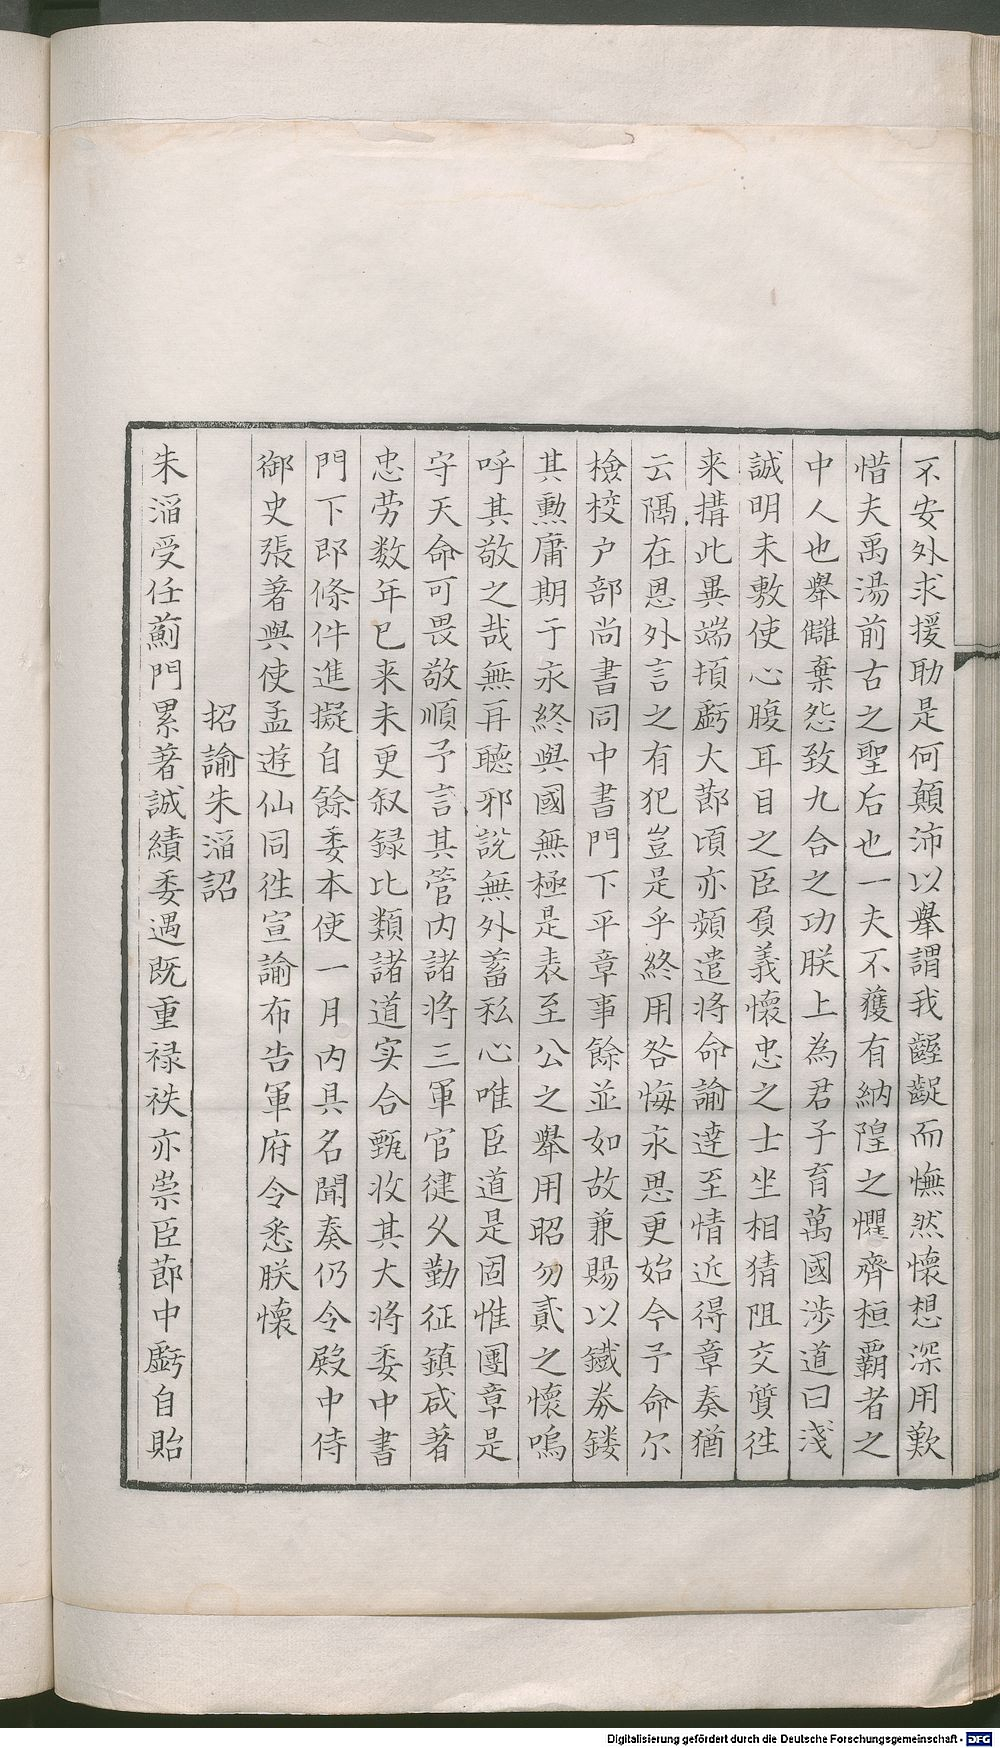 不安外求援助是何顛沛以舉謂我齷齪而憮然懷想深用歎
惜夫禹湯前古之聖后也一夫不獲有納隍之懼齊桓霸者之
中人也舉讎棄怨致九合之功朕上為君子育萬國涉道曰淺
誠明未敷使心腹耳目之臣負義懷忠之士坐相猜阻交質徃
来搆此異端頓虧大莭頃亦頻遣將命諭達至情近得章奏猶
云隔在恩外言之有犯豈是乎終用咎悔永思更始今予命尔
檢校户部尚書同中書門下平章事餘並如故兼賜以鐵券鏤
其勲庸期于永終與國無極是表至公之舉用昭勿貳之懷嗚
呼其敬之哉無再聽邪說無外蓄私心唯臣道是固惟圑章是
守天命可畏敬順予言其管内諸將三軍官健久勤征鎮咸著
忠劳数年已来未更叙録比類諸道实合甄收其大將委中書
門下即條件進擬自餘委本使一月内具名聞奏仍令殿中侍
御史張著與使孟遊仙同徃宣諭布告軍府令悉朕懷
招諭朱滔詔
朱滔受任薊門累著誠績委遇既重禄袟亦崇臣莭中虧自貽
Digitalisierung gefördert durch die Deutsche Forschungsgemeinschaft - DFG